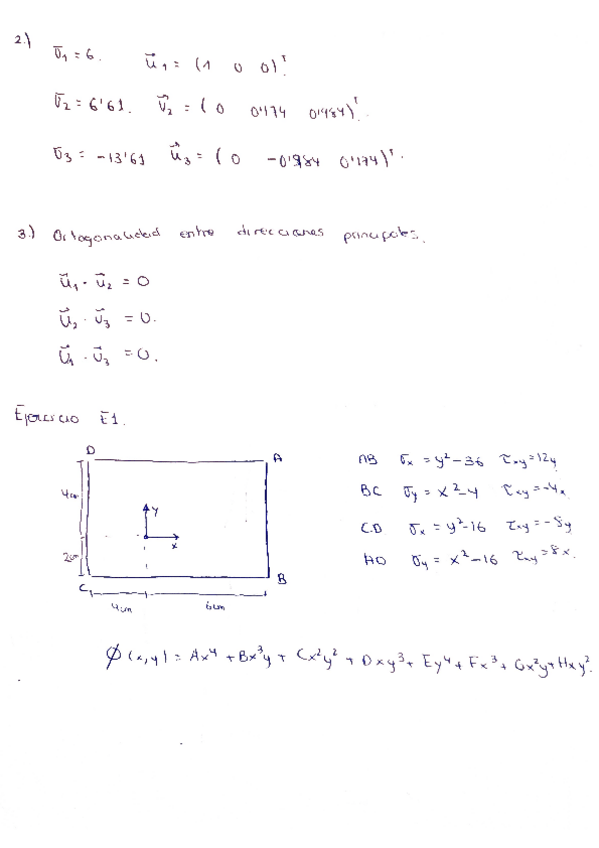 2.)
σ₁ = 6. u⃗₁ = (1 0 0)ᵀ.
σ₂ = 6'61. u⃗₂ = (0 0'174 0'984)ᵀ.
σ₃ = -13'61 u⃗₃ = (0 -0'984 0'174)ᵀ.
3.) Ortogonalidad entre direcciones principales.
u⃗₁ · u⃗₂ = 0
u⃗₂ · u⃗₃ = 0.
u⃗₁ · u⃗₃ = 0.
Ejercicio E1.
D
A
4cm
y
x
2cm
C
B
4cm
6cm
AB σx = y² - 36 τxy = 12y
BC σy = x² - 4 τxy = -4x
CD σx = y² - 16 τxy = -8y
AD σy = x² - 16 τxy = 8x.
Ø(x,y) = Ax⁴ + Bx³y + Cx²y² + Dxy³ + Ey⁴ + Fx³ + Gx²y + Hxy².